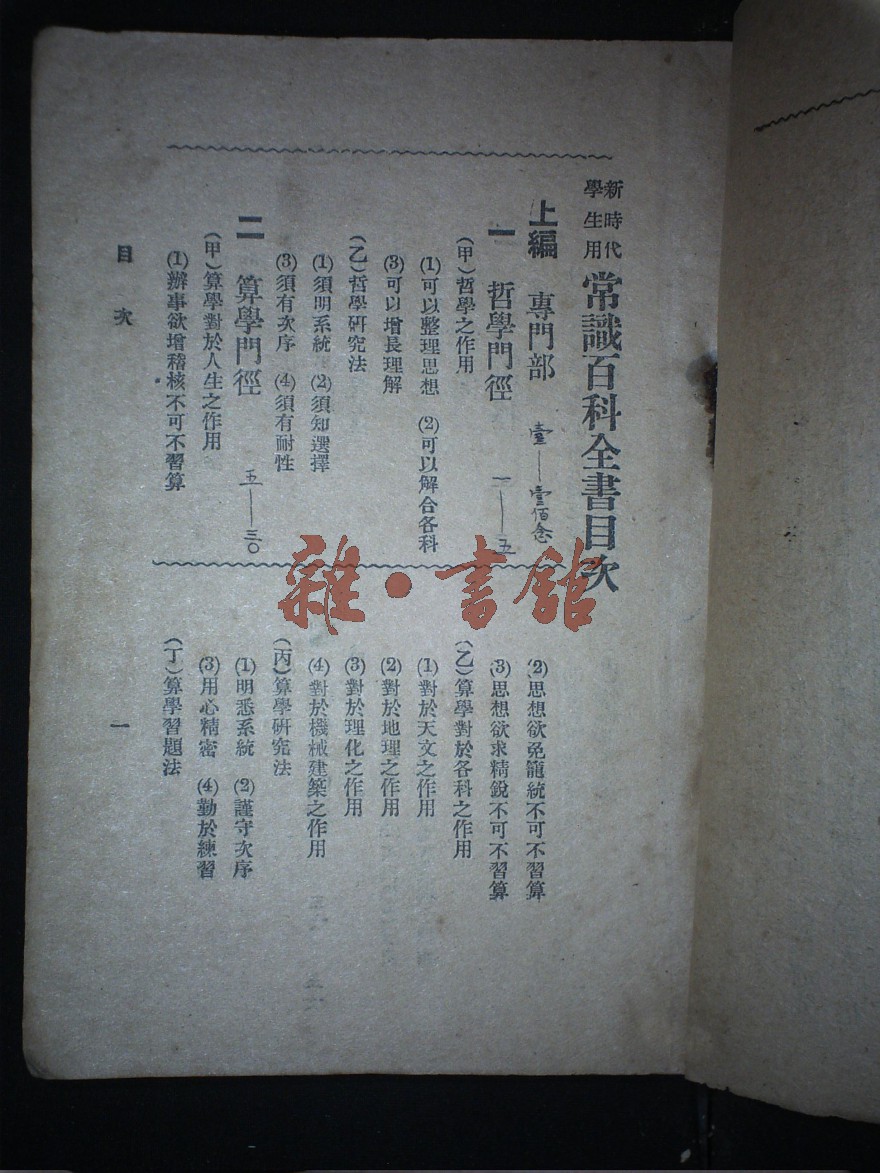 新時代
學生用
常識百科全書目次
上編 專門部 壹——壹佰念
一 哲學門徑 一——五
(甲)哲學之作用
(1)可以整理思想 (2)可以解合各科
(3)可以增長理解
(乙)哲學研究法
(1)須明系統 (2)須知選擇
(3)須有次序 (4)須有耐性
二 算學門徑 五——三〇
(甲)算學對於人生之作用
(1)辦事欲增稽核不可不習算
(2)思想欲免籠統不可不習算
(3)思想欲求精銳不可不習算
(乙)算學對於各科之作用
(1)對於天文之作用
(2)對於地理之作用
(3)對於理化之作用
(4)對於機械建築之作用
(丙)算學研究法
(1)明悉系統 (2)謹守次序
(3)用心精密 (4)勤於練習
(丁)算學習題法
目次
一
雜·書館